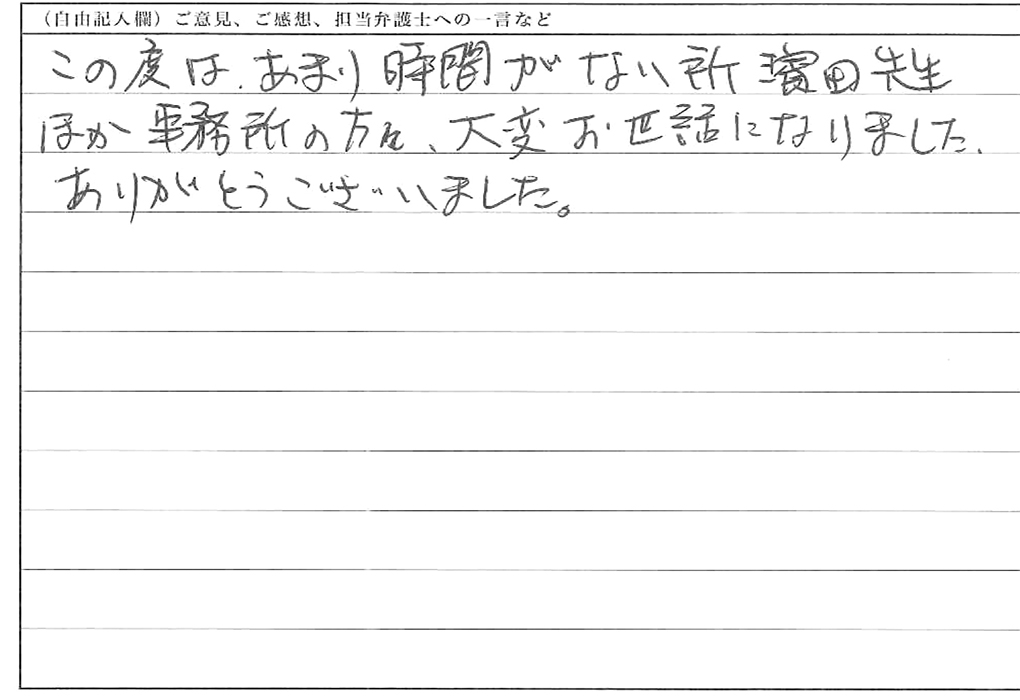 （自由記入欄）ご意見、ご感想、担当弁護士への一言など
この度は、あまり時間がない所濱田先生
ほか事務所の方々、大変お世話になりました、
ありがとうございました。